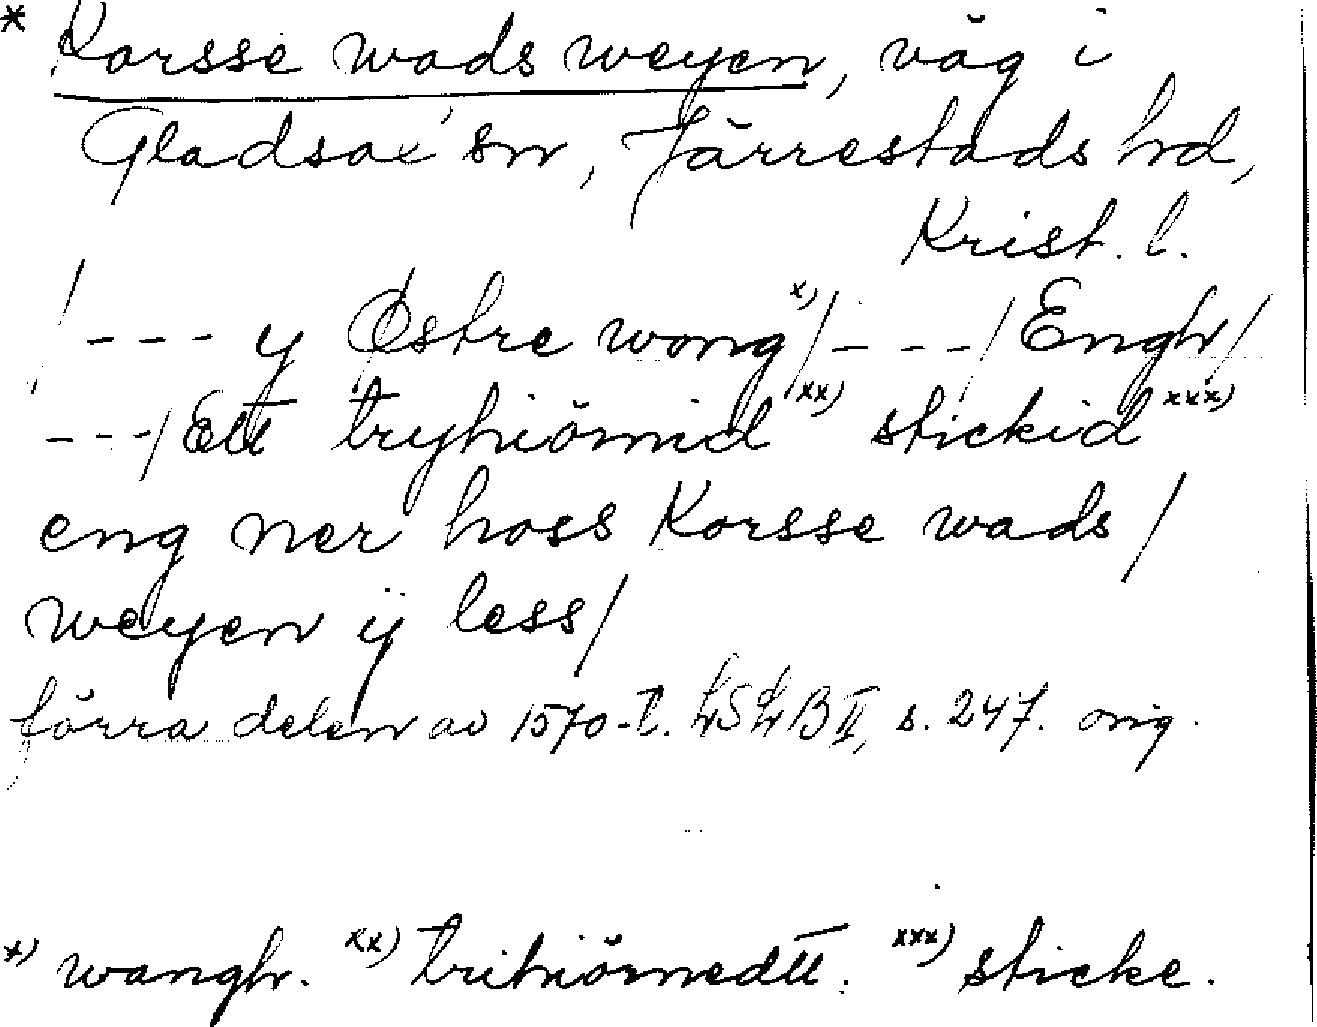 * Korsse wads weyen, väg i
Gladsax sn, Järrestads hd,
Krist. l.
/--- y Østre wong x) /---/ Engh/
---/ Ett tryhiörnid xx) stickid xxx)
eng ner hoss Korsse wads/
weyen ÿ less/
förra delen av 1570-t. LSLB II, s. 247. orig.
x) wangh. xx) trihiörnedtt. xxx) sticke.